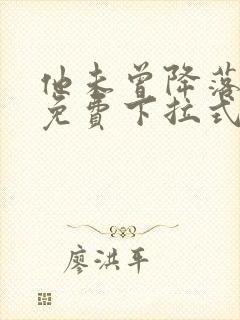 他未曾降落
免費下拉式
廖洪平